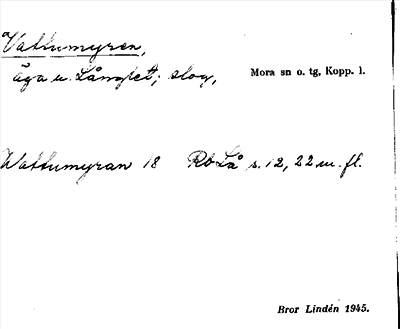 Vattumyren,
äga u. Långlet; slog, Mora sn o. tg, Kopp. l.
Wattumyran 18 Rb Lå s. 12, 22 m. fl.
Bror Lindén 1945.